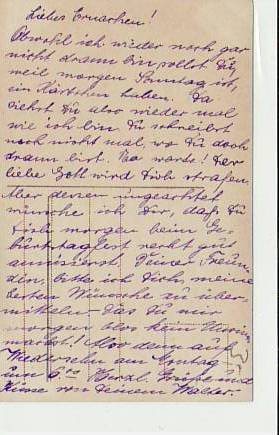 Liebes Ernachen!
Obwohl ich wieder noch gar
nicht dran bin sollst Du,
weil morgen Sonntag ist,
ein Kärtchen haben. Da
siehst Du also wieder mal
wie ich bin Du schreibst
noch nicht mal, wo Du doch
dran bist. Na warte! Der
liebe Gott wird Dich strafen.
Aber dessen ungeachtet
wünsche ich Dir, daß Du
Dich morgen beim Ge-
burtstagfest recht gut
amüsierst. Deiner Freun-
din, bitte ich Dich, meine
besten Wünsche zu über-
mitteln. Das Du mir
morgen blos kein
machst! Also denn auf
Wiedersehn am Montag
um 6 Herzl. Grüße und
Küsse von Deinem Walter.